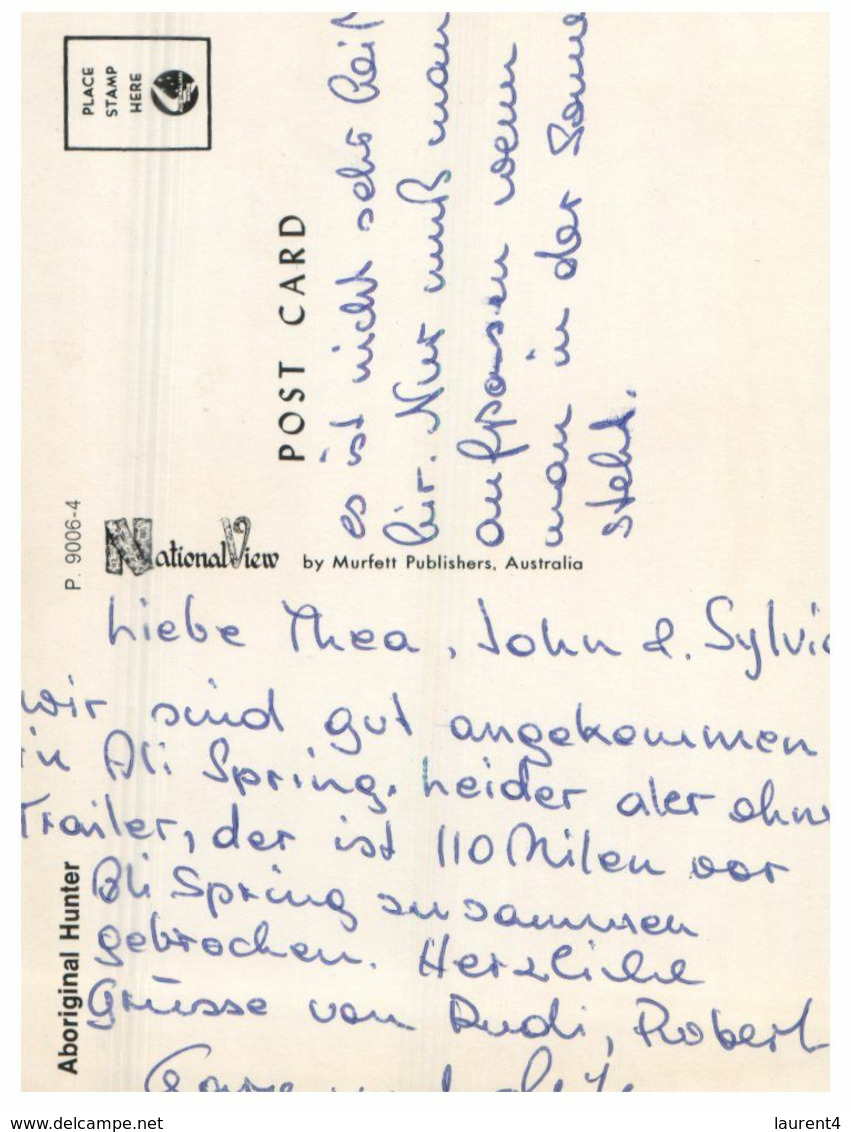 PLACE
STAMP
HERE
POST CARD
P. 9006-4
National View by Murfett Publishers, Australia
Aboriginal Hunter
Liebe Thea, John &. Sylvia
wir sind gut angekommen
in Ali Spring. Leider aber ohne
Trailer, der ist 110 Milen vor
Ali Spring zusammen
gebrochen. Herzliche
Grüsse von Rudi, Robert
und
es ist nicht sehr heiß
hir. Nur muß man
aufpassen wenn
man in der Sonne
steht.
www.delcampe.net
laurent4